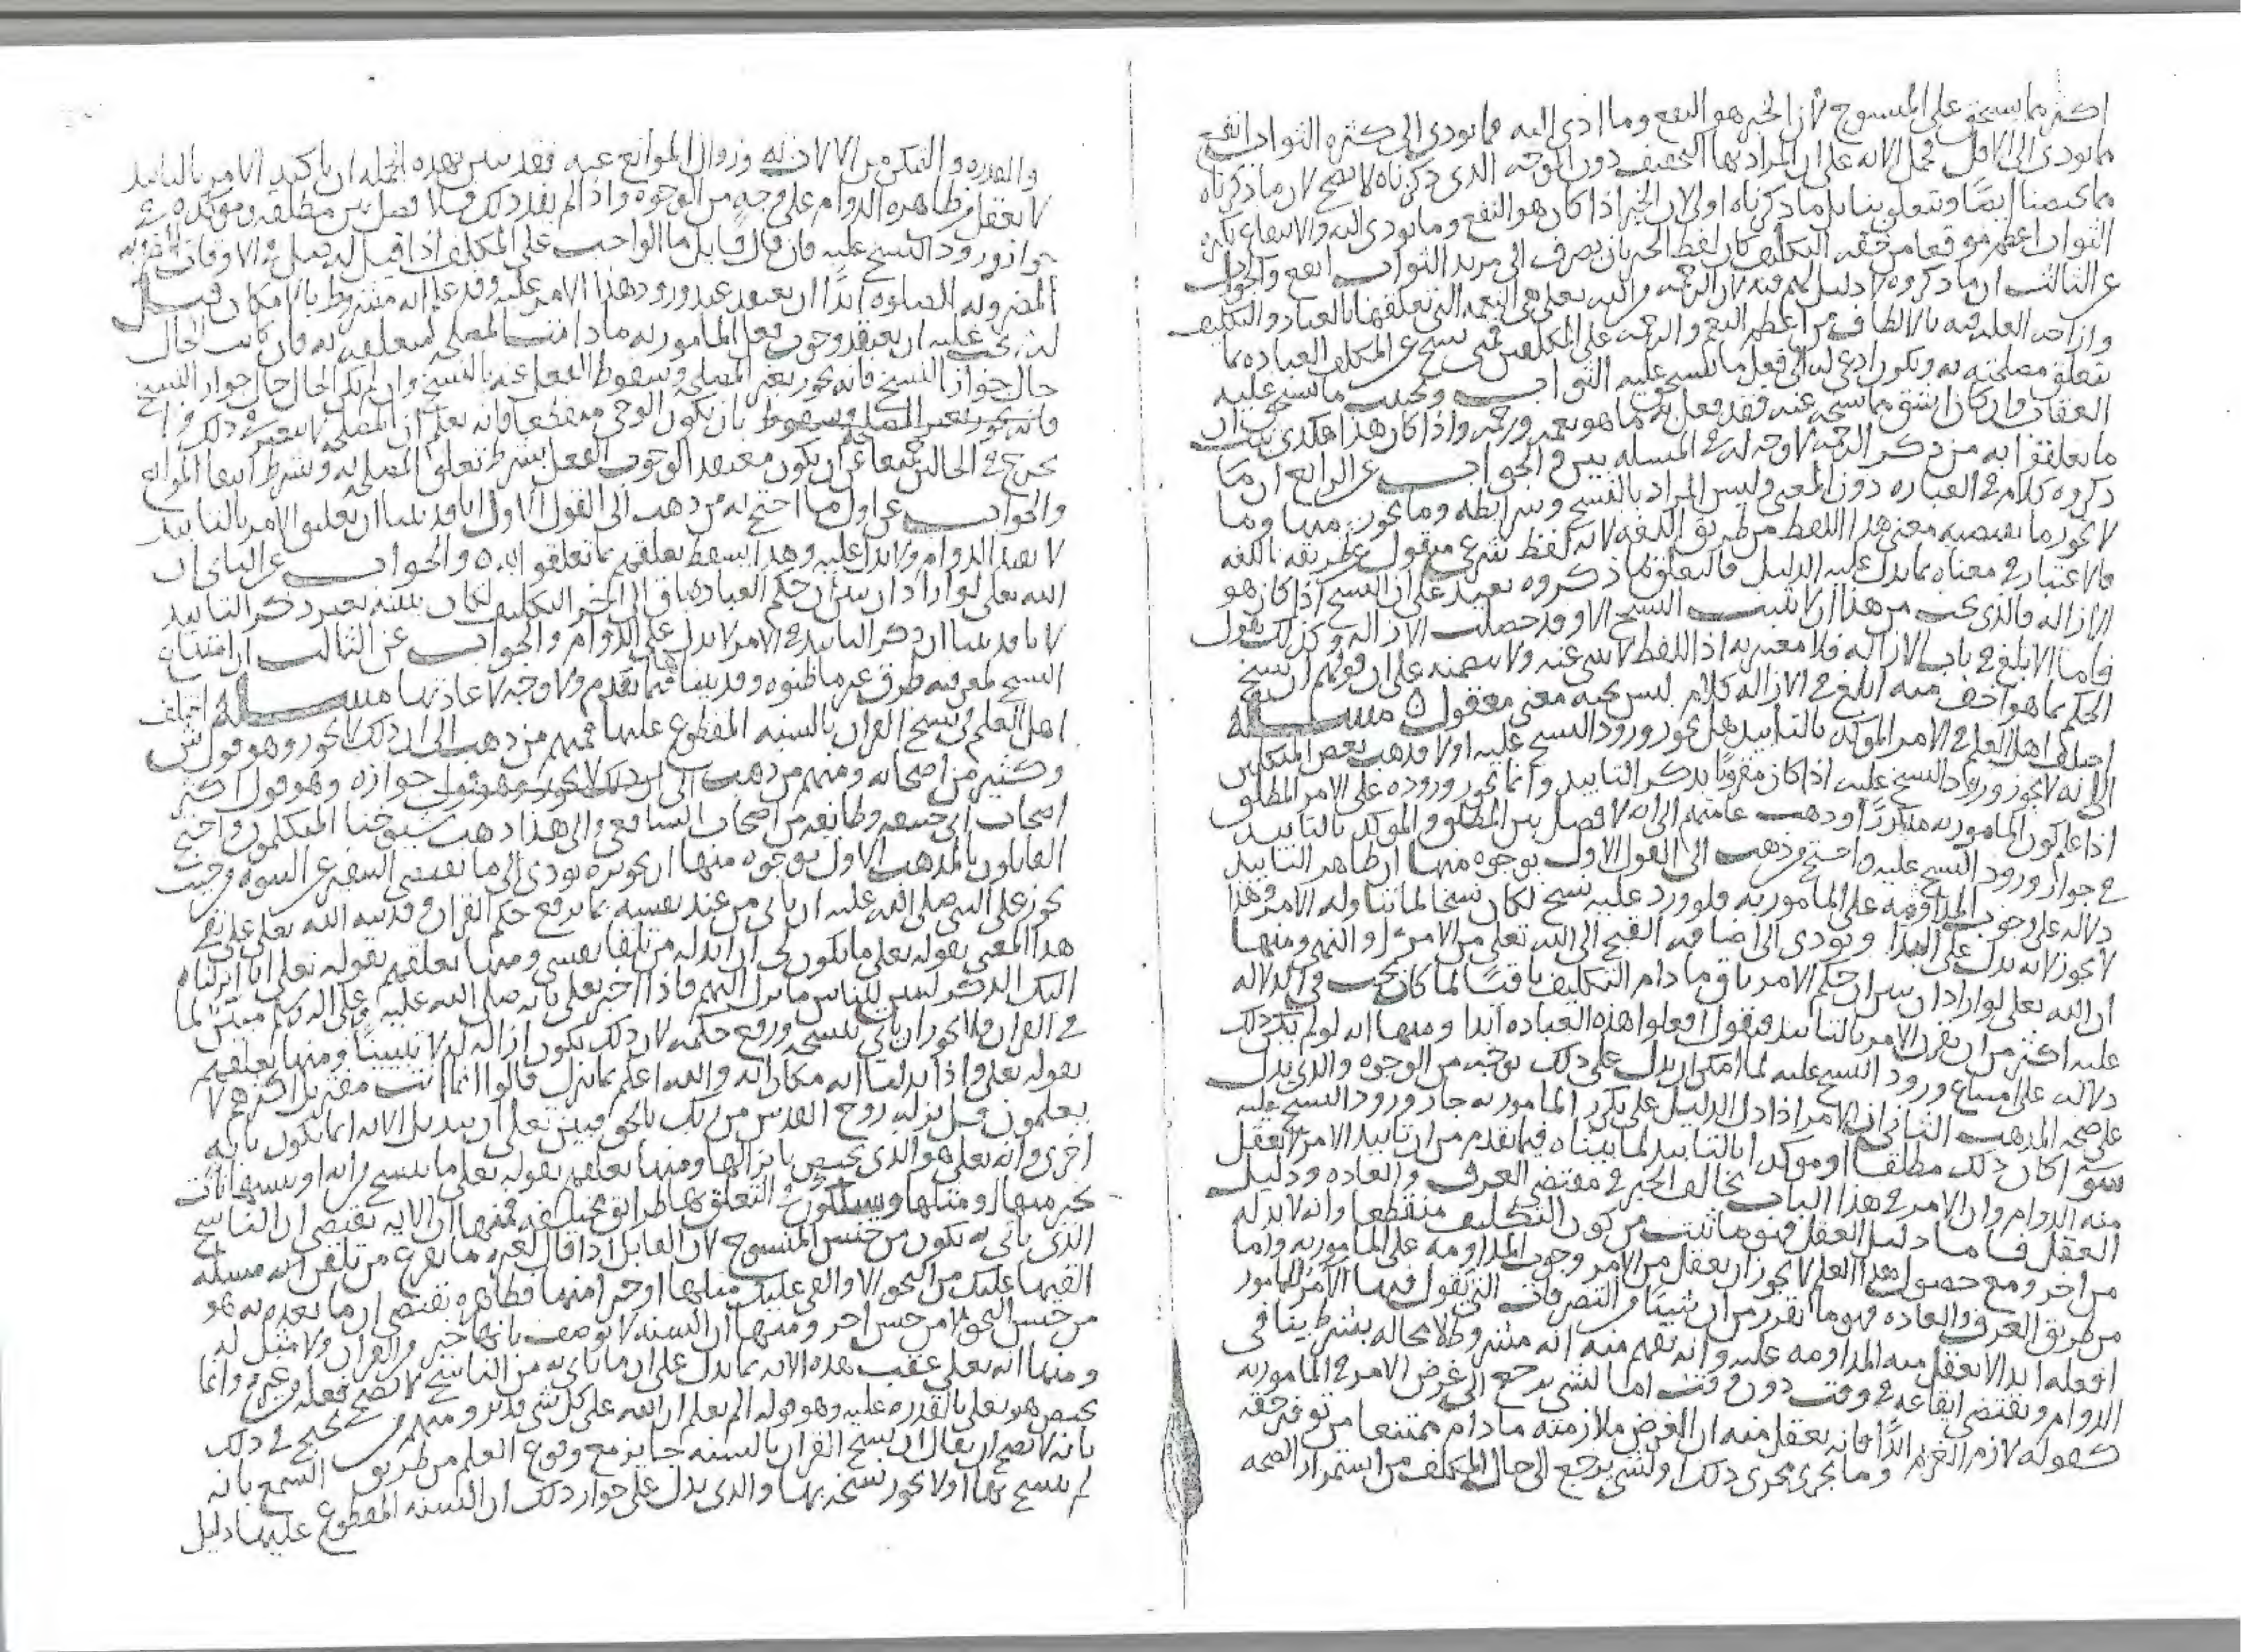 اكثر مما يستحق على المنسوخ لأن الخير هو النفع وما ادى اليه فما يودي الى كثره الثواب انفع
مما يودي الى الاقل فحمل الايه على ان المراد بها التخفيف دون الوجه الذي ذكرناه لا يصح لان ما ذكرناه
مما يخصنا ايضا ويتعلق بنا بل ما ذكرناه اولى لان الخير اذا كان هو النفع وما يودي اليه والانتفاع بكثرة
الثواب اعظم موقعا من خفه التكليف كان لفظ الخير بان يصرف الى مزيد الثواب انفع والجواب
عن الثالث ان ما ذكروه لا دليل لهم فيه لان الرحمه من الله تعلى هي النعمه التي تعلقها بالعباد والتكليف
وازاحه العله فيه بالالطاف من اعظم النعم والرحمه على المكلفين فمتى نسخ عن المكلف العباده بما
تتعلق مصلحته به ويكون ادعى له الى فعل ما يستحق عليه الثواب وتجنب ما يستحق عليه
العقاب وان كان اشق مما نسخه عنه فقد فعل به ما هو نعمه ورحمه واذا كان هذا هكذى ثبت ان
ما تعلقوا به من ذكر الرحمه لا وجه له في المسله بين والجواب عن الرابع ان ما
ذكروه كلام في العباره دون المعنى وليس المراد بالنسخ وشرايطه وما يجوز منها وما
لا يجوز ما يقتضيه معنى هذا اللفظ من طريق اللغه لانه لفظ شرعي منقول عن طريقه باللغه
فالاعتبار في معناه بما يدل عليه الدليل فالتعلق بما ذكروه بعيد على ان النسخ اذا كان هو
الازاله فالذي يجب من هذا ان لا يثبت النسخ الا وقد حصلت الازاله وكذلك نقول
فاما الابلغ في باب الازاله فلا معتبر به اذ اللفظ لا ينبي عنه ولا يتضمنه على ان قولهم ان نسخ
الحكم بما هو اخف منه ابلغ في الازاله كلام ليس تحته معنى معقول ٥ مسله
اختلف اهل العلم في الامر الموكد بالتابيد هل يجوز ورود النسخ عليه او لا فذهب بعض المتكلمين
الى انه لا يجوز ورود النسخ عليه اذا كان مقرونا بذكر التابيد وانما يجوز وروده على الامر المطلق
اذا علم كون المامور به متكررا وذهب عامتهم الى انه لا فصل بين المطلق والموكد بالتابيد
في جواز ورود النسخ عليه واحتج من ذهب الى القول الاول بوجوه منها ان ظاهر التابيد
دلاله على وجوب المداومه على المامور به فلو ورد عليه نسخ لكان نسخا لما تناوله الامر وهذا
لا يجوز لانه يدل على البدا ويودي الى اضافه القبح الى الله تعلى من الامر والنهي ومنها
ان الله تعلى لو اراد ان يبين ان حكم الامر باق ما دام التكليف باقيا لما كان يجب في الدلاله
عليه اكثر من ان يقرن الامر بالتابيد فيقول افعلوا هذه العباده ابدا ومنها انه لو لم يكن ذلك
دلالة على امتناع ورود النسخ عليه لما امكن ان يدل على ذلك بوجه من الوجوه والذي يدل
على صحه المذهب الثاني ان الامر اذا دل الدليل على تكرر المامور به جاز ورود النسخ عليه
سوا كان ذلك مطلقا او موكدا بالتابيد لما بيناه فيما تقدم من ان تابيد الامر لا يعقل
منه الدوام وان الامر في هذا الباب يخالف الخبر في مقتضى العرف والعاده ودليل
العقل فاما دليل العقل فهو ما ثبت من كون التكليف منقطعا وانه لا بد له
من اخر ومع حصول هذا العلم لا يجوز ان يعقل من الامر وجوب المداومه على المامور به واما
من طريق العرف والعاده فهو ما تقرر من ان شيئا من التصرفات التي نقول فيها الآمر للمامور
افعله ابدا لا يعقل منه المداومه عليه وانه يفهم منه انه مشروط لا محاله بشرط ينافي
الدوام ويقتضي ايقاعه في وقت دون وقت اما لشي يرجع الى غرض الامر في المامور به
كقوله لازم الغريم ابدا فانه يعقل منه ان الغرض ملازمته ما دام ممتنعا من توفير حقه
وما يجرى مجرى ذلك او لشي يرجع الى حال المكلف من استمرار الصحه
والقدره والتمكن من الالات وزوال الموانع عنه فقد تبين بهذه الجمله ان تاكيد الامر بالتابيد
لا يعقل من ظاهره الدوام على وجه من الوجوه واذا لم يفد ذلك فلا فصل بين مطلقه وموكده في
جواز ورود النسخ عليه فان قال قايل ما الواجب على المكلف اذا قيل له صل في الاوقات
المضروبه الصلوه ابدا ان يعتقد عند ورود هذا الامر عليه وقد علم انه مشروط بالامكان قيل
له يجب عليه ان يعتقد وجوب فعل المامور به ما دامت المصلحه متعلقه به فان كانت الحال
حال جواز النسخ فانه يجوز تغير المصلحه وسقوط الفعل عنه بالنسخ وان لم يكن الحال حال جواز النسخ
بان يكون الوحي منقطعا فانه يعلم ان المصلحه لا تتغير في ذلك ولا
يخرج في الحالين جميعا عن ان يكون معتقدا لوجوب الفعل بشرط تعلق المصلحه به وبشرط انتفا الموانع
والجواب عن اول ما احتج به من ذهب الى القول الاول انا قد بينا ان تعليق الامر بالتابيد
لا يفيد الدوام ولا يدل عليه وهذا يسقط تعلقهم بما تعلقوا به ٥ والجواب عن الثاني ان
الله تعلى لو اراد ان يبين ان حكم العباده باق الى اخر التكليف لكان يبينه بغير ذكر التابيد
لانا قد بينا ان ذكر التابيد في الامر لا يدل على الدوام والجواب عن الثالث ان امتناع
النسخ لمعرفته طرق غير ما ظنوه وقد بيناها فيما تقدم ولا وجه لاعادتها مسله اختلف
اهل العلم في نسخ القران بالسنه المقطوع عليها فمنهم من ذهب الى ان ذلك لا يجوز وهو قول ش
وكثير من اصحابه ومنهم من ذهب الى جوازه وهو قول اكثر
اصحاب ابي حنيفه وطايفه من اصحاب الشافعي والى هذا ذهب شيوخنا المتكلمون واحتج
القايلون بالمذهب الاول بوجوه منها ان تجويزه يودي الى ما يقتضي التنفير عن النبوه من حيث
يجوز على النبي صلى الله عليه ان ياتي من عند نفسه بما يرفع حكم القران وقد نبه الله تعلى على نفي
هذا المعنى بقوله تعلى ما يكون لي ان ابدله من تلقا نفسي ومنها تعلقهم بقوله تعلى انا انزلنا
اليك الذكر لتبين للناس ما نزل اليهم فاذا اخبر تعلى بانه صلى الله عليه وعلى اله وسلم مبين لما
في القران فلا يجوز ان ياتي بنسخه ورفع حكمه لان ذلك يكون ازالة له لا تبيينا ومنها تعلقهم
بقوله تعلى واذا بدلنا ايه مكان ايه والله اعلم بما ينزل قالوا انما انت مفتر بل اكثرهم لا
يعلمون قل نزله روح القدس من ربك بالحق فبين تعلى ان تبديل الايه انما يكون بايه
اخرى وانه تعلى هو الذي يختص بانزالها ومنها تعلقهم بقوله تعلى ما ننسخ من ايه او ننسها نات
بخير منها او مثلها ويسلكون في التعلق بها طرايق مختلفه فمنها ان الايه تقتضي ان الناسخ
الذي ياتي به يكون من جنس المنسوخ لان القايل اذا قال لغيره ما نفرغ من تلقين ايه مسله
القيها عليك من النحو الا والقي عليك مثلها او خيرا منها فظاهره يقتضي ان ما يعده به هو
من جنس النحو لا من جنس اخر ومنها ان السنه لا توصف بانها خير من القران ولا مثل له
ومنها انه تعلى عقب هذه الايه بما يدل على ان ما ياتي به من الناسخ لا يصح فعله من غيره وانما
يختص هو تعلى بالقدره عليه وهو قوله الم تعلم ان الله على كل شي قدير ومنهم من يحتج في ذلك
بانه لا يصح ان يقال ان نسخ القران بالسنه جايز مع وقوع العلم من طريق السمع بانه
لم ينسخ بها او لا يجوز نسخه بها والذي يدل على جواز ذلك ان السنه المقطوع عليها دليل